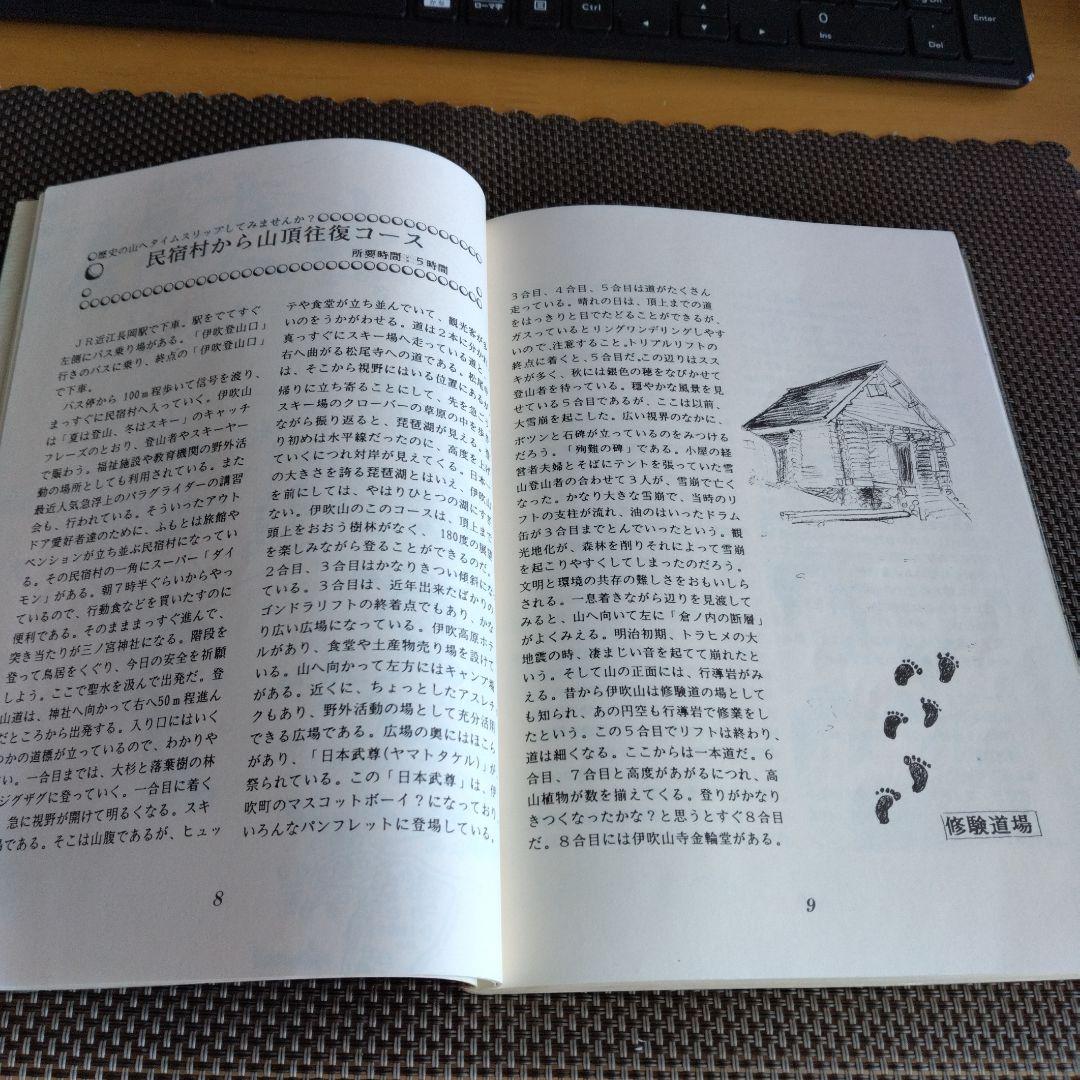 かな
ローマ字
Ctrl
0
Ins
Del
Enter
歴史の山へタイムスリップしてみませんか?
民宿村から山頂往復コース
所要時間:5時間
JR近江長岡駅で下車。駅をでてすぐ
左側にバス乗り場がある。「伊吹登山口」
行きのバスに乗り、終点の「伊吹登山口」
で下車。
バス停から100m程歩いて信号を渡り、
まっすぐに民宿村へ入っていく。伊吹山
は「夏は登山、冬はスキー」のキャッチ
フレーズのとおり、登山者やスキーヤー
で賑わう。福祉施設や教育機関の野外活
動の場所としても利用されている。また
最近人気急浮上のパラグライダーの講習
会も、行われている。そういったアウト
ドア愛好者達のために、ふもとは旅館や
ペンションが立ち並ぶ民宿村になってい
る。その民宿村の一角にスーパー「ダイ
モン」がある。朝7時半ぐらいからやっ
ているので、行動食などを買いたすのに
便利である。そのまままっすぐ進んで、
突き当たりが三ノ宮神社になる。階段を
登って鳥居をくぐり、今日の安全を祈願
しよう。ここで聖水を汲んで出発だ。登
山道は、神社へ向かって右へ50m程進ん
だところから出発する。入り口にはいく
つかの道標が立っているので、わかりや
い。一合目までは、大杉と落葉樹の林
ジグザグに登っていく。一合目に着く
急に視野が開けて明るくなる。スキ
場である。そこは山腹であるが、ヒュッ
テや食堂が立ち並んでいて、観光客が多
いのをうかがわせる。道は2本に分かれ
真っすぐにスキー場へ走っている道と、
右へ曲がる松尾寺への道である。松尾寺
は、そこから視野にはいる位置にあるが
帰りに立ち寄ることにして、先を急ごう
スキー場のクローバーの草原の中を歩き
ながら振り返ると、琵琶湖が見える。登
り初めは水平線だったのに、高度を上げ
ていくにつれ対岸が見えてくる。日本一
の大きさを誇る琵琶湖とはいえ、伊吹山
を前にしては、やはりひとつの湖にすぎ
ない。伊吹山のこのコースは、頂上まで
頭上をおおう樹林がなく、180度の展望
を楽しみながら登ることができるのだ。
2合目、3合目はかなりきつい傾斜にな
ている。3合目は、近年出来たばかりの
ゴンドラリフトの終着点でもあり、かな
り広い広場になっている。伊吹高原ホテ
ルがあり、食堂や土産物売り場を設けて
いる。山へ向かって左方にはキャンプ場
がある。近くに、ちょっとしたアスレチ
クもあり、野外活動の場として充分活用
できる広場である。広場の奥にはほこら
があり、「日本武尊(ヤマトタケル)」が
祭られている。この「日本武尊」は、伊
吹町のマスコットボーイ?になっており
いろんなパンフレットに登場している。
8
3合目、4合目、5合目は道がたくさん
走っている。晴れの日は、頂上までの道
をはっきりと目でたどることができるが、
ガスっているとリングワンデリングしやす
いので、注意すること。トリアルリフトの
終点に着くと、5合目だ。この辺りはスス
キが多く、秋には銀色の穂をなびかせて
登山者を待っている。穏やかな風景を見
せている5合目であるが、ここは以前、
大雪崩を起こした。広い視界のなかに、
ポツンと石碑が立っているのをみつける
だろう。「殉難の碑」である。小屋の経
営者夫婦とそばにテントを張っていた雪
山登山者の合わせて3人が、雪崩で亡く
なった。かなり大きな雪崩で、当時のリ
フトの支柱が流れ、油のはいったドラム
缶が3合目までとんでいったという。観
光地化が、森林を削りそれによって雪崩
を起こりやすくしてしまったのだろう。
文明と環境の共存の難しさをおもいしら
される。一息着きながら辺りを見渡して
みると、山へ向いて左に「倉ノ内の断層」
がよくみえる。明治初期、トラヒメの大
地震の時、凄まじい音を起てて崩れたと
いう。そして山の正面には、行導岩がみ
える。昔から伊吹山は修験道の場として
も知られ、あの円空も行導岩で修業をし
たという。この5合目でリフトは終わり、
道は細くなる。ここからは一本道だ。6
合目、7合目と高度があがるにつれ、高
山植物が数を揃えてくる。登りがかなり
きつくなったかな?と思うとすぐ8合目
だ。8合目には伊吹山寺金輪堂がある。
修験道場
9